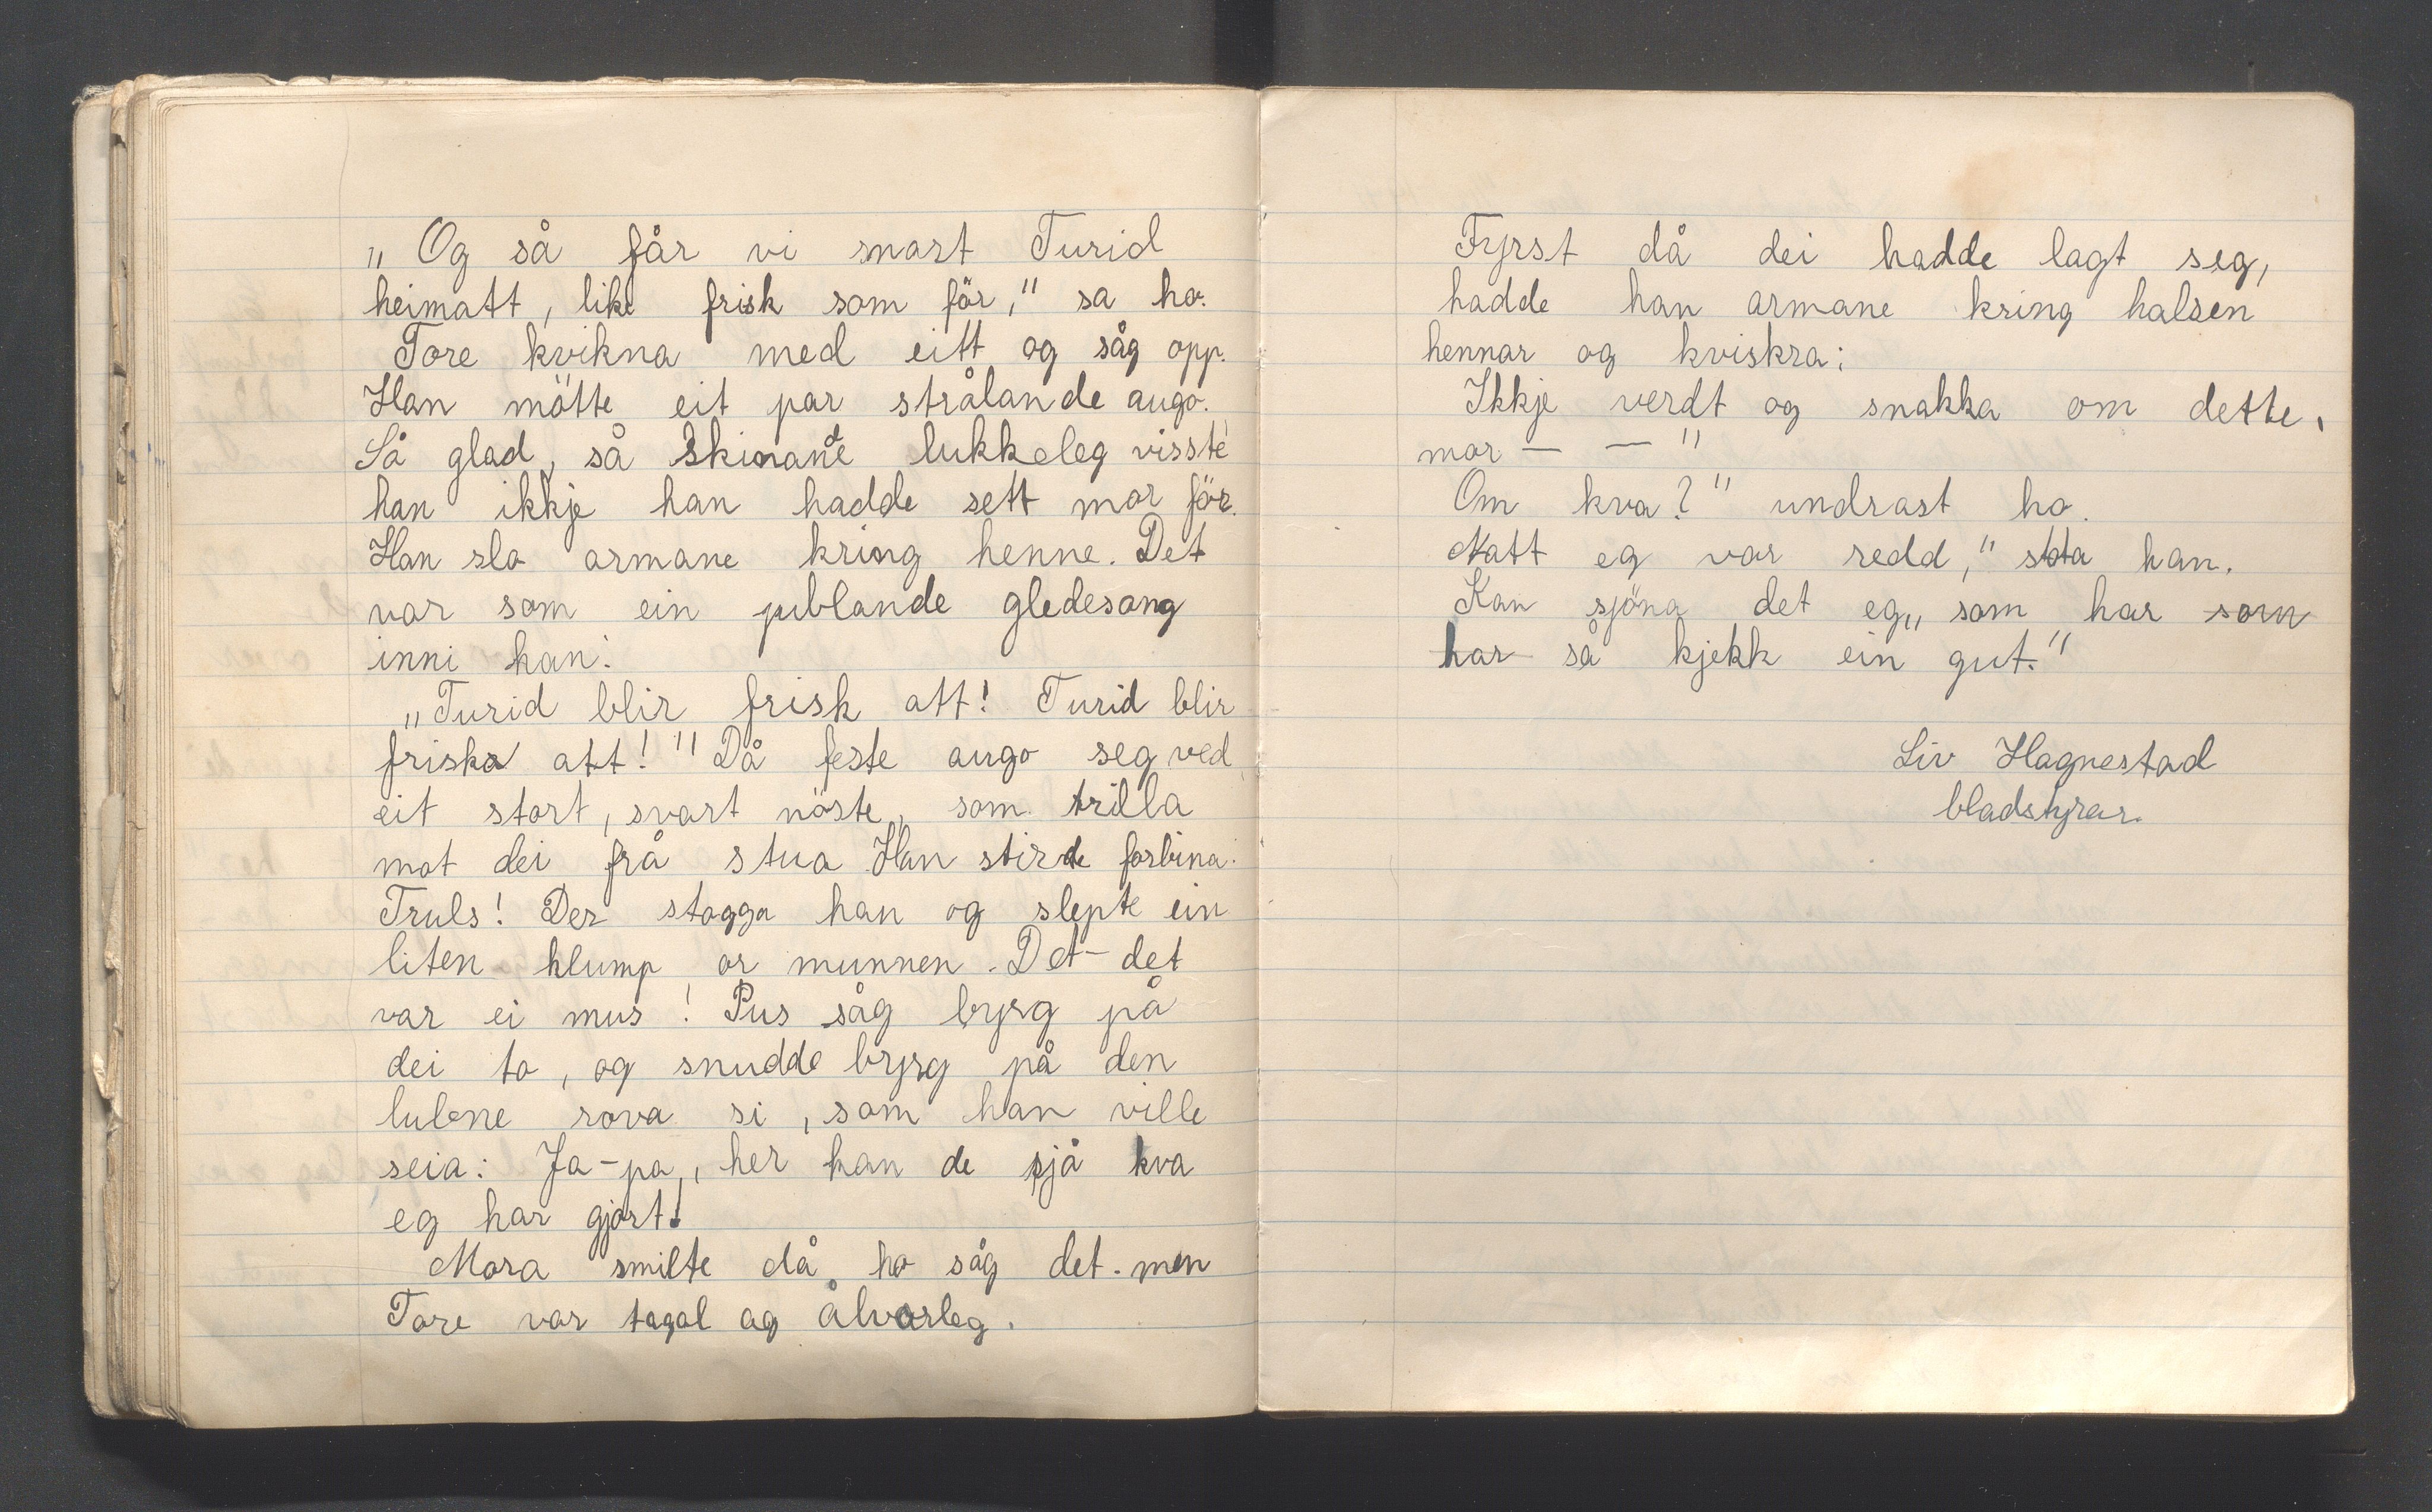 „Og så får vi snart Turid
heimatt, like frisk som för," sa ho.
Tore kvikna med eitt og såg opp.
Han mötte eit par strålande augo.
Så glad, så skinande lukkeleg visste
han ikkje han hadde sett mor för.
Han slo armane kring henne. Det
var som ein jublande gledesong
inni han.
„Turid blir frisk att! Turid blir
frisk att!" Då feste augo seg ved
eit stort, svart nöste, som trilla
mot dei frå stua Han stirde forbina.
Truls! Der stogga han og slepte ein
liten klump or munnen. Det- det
var ei mus! Pus såg byrg på
dei to, og snudde byrg på den
lubne rova si, som han ville
seia: Ja-pa, her kan de sjå kva
eg har gjort!
Mora smilte då ho såg det. men
Tore var tagal og ålvorleg.
Fyrst då dei hadde lagt seg,
hadde han armane kring halsen
hennar og kviskra:
Ikkje verdt og snakka om dette,
mor — — "
Om kva?" undrast ho.
Natt eg var redd," sa han.
Kan sjöna det eg„ som har som
har så kjekk ein gut."
Liv Hagnestad
bladstyrar.